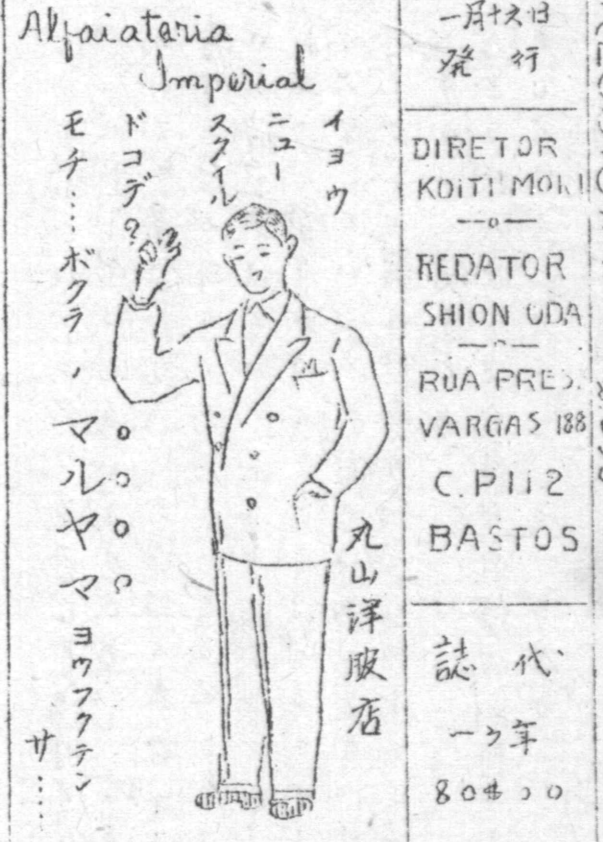 Alfaiataria
Imperial
イヨウ
ニュー
スタイル
ドコデ?
モチ……ボクラノ
マルヤマ
ヨウフクテン
サ……
丸山洋服店
発行
DIRETOR
KOITI MORI
REDATOR
SHION UDA
RUA PRES.
VARGAS 188
C.P 112
BASTOS
誌代
一ヶ年
80$00